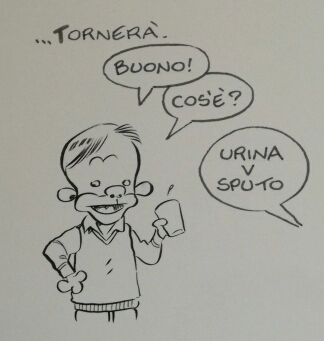 ...TORNERÀ.
BUONO!
COS'È?
URINA
V
SPUTO